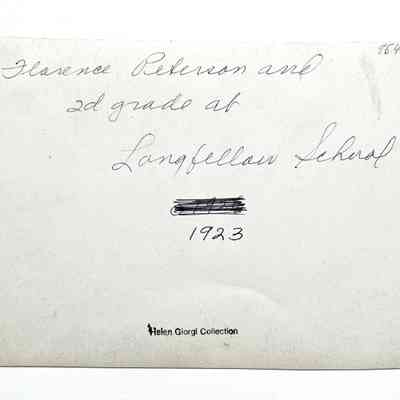 964
Florence Peterson and
2d grade at
Longfellow School
1923
Helen Giorgi Collection